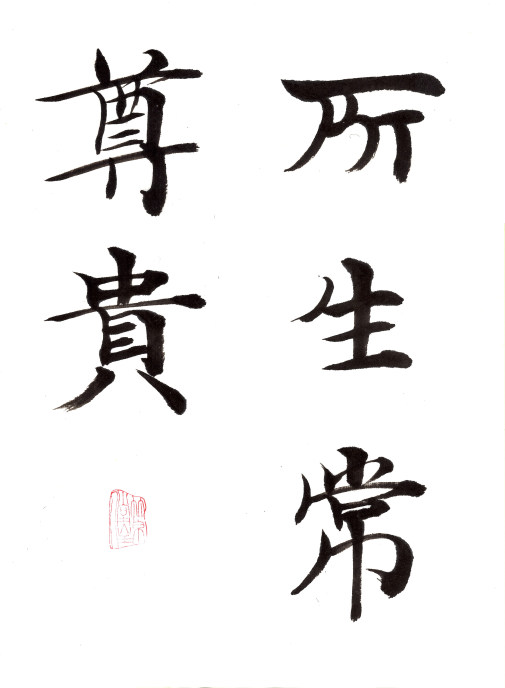 所生常
尊貴